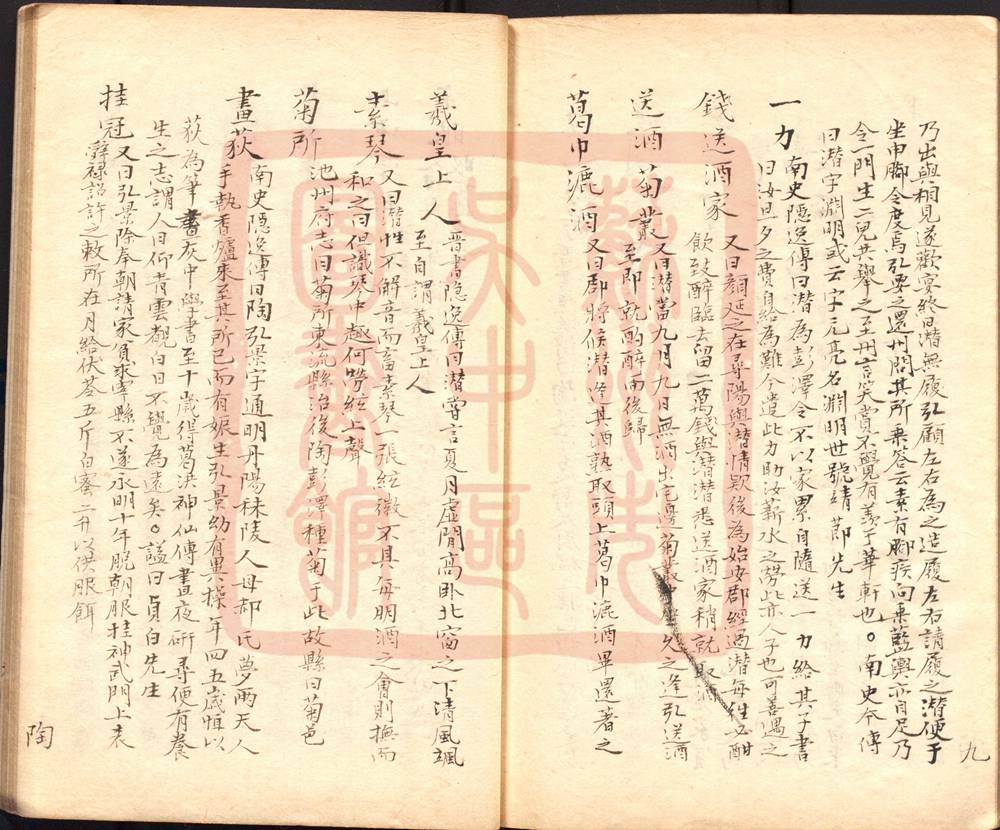 乃出與相見遂歡宴終日潛無履弘顧左右為之造履左右請履之潛便于
坐申脚令度焉弘要之還州問其所乘荅云素有脚疾向乘藍輿亦自足乃
令一門生二兒共轝之至州言笑賞不覺有羨于華軒也。南史本傳
曰潛字淵明或云字元亮名淵明世號靖節先生
一力南史隱逸傳曰潛為彭澤令不以家累自隨送一力給其子書
曰汝旦夕之費自給為難今遣此力助汝薪水之勞此亦人子也可善遇之
錢送酒家又曰顏延之在尋陽與潛情款後為始安郡經過潛每往必酣
飲致醉臨去留二萬錢與潛潛悉送酒家稍就取酒
送酒菊叢又曰潛當九月九日無酒出宅邊菊叢中坐久之逢弘送酒
至即就酌醉而後歸
葛巾漉酒又曰郡將候潛逢其酒熟取頭上葛巾漉酒畢還著之
九
羲皇上人晉書隱逸傳曰潛嘗言夏月虛閒高卧北窗之下清風颯
至自謂羲皇上人
素琴又曰潛性不解音而畜素琴一張絃徽不具每朋酒之會則撫而
和之曰但識琴中趣何勞絃上聲
菊所池州府志曰菊所東流縣治後陶彭澤種菊于此故縣曰菊邑
畫荻南史隱逸傳曰陶弘景字通明丹陽秣陵人母郝氏夢兩天人
手執香爐來至其所已而有娠生弘景幼有異操年四五歲恒以
荻為筆書灰中學書至十歲得葛洪神仙傳晝夜研尋便有養
生之志謂人曰仰青雲覩白日不覺為遠矣。謚曰貞白先生
挂冠又曰弘景除奉朝請家貧求宰縣不遂永明十年脫朝服挂神武門上表
辭祿詔許之敕所在月給伏苓五斤白蜜二升以供服餌
陶